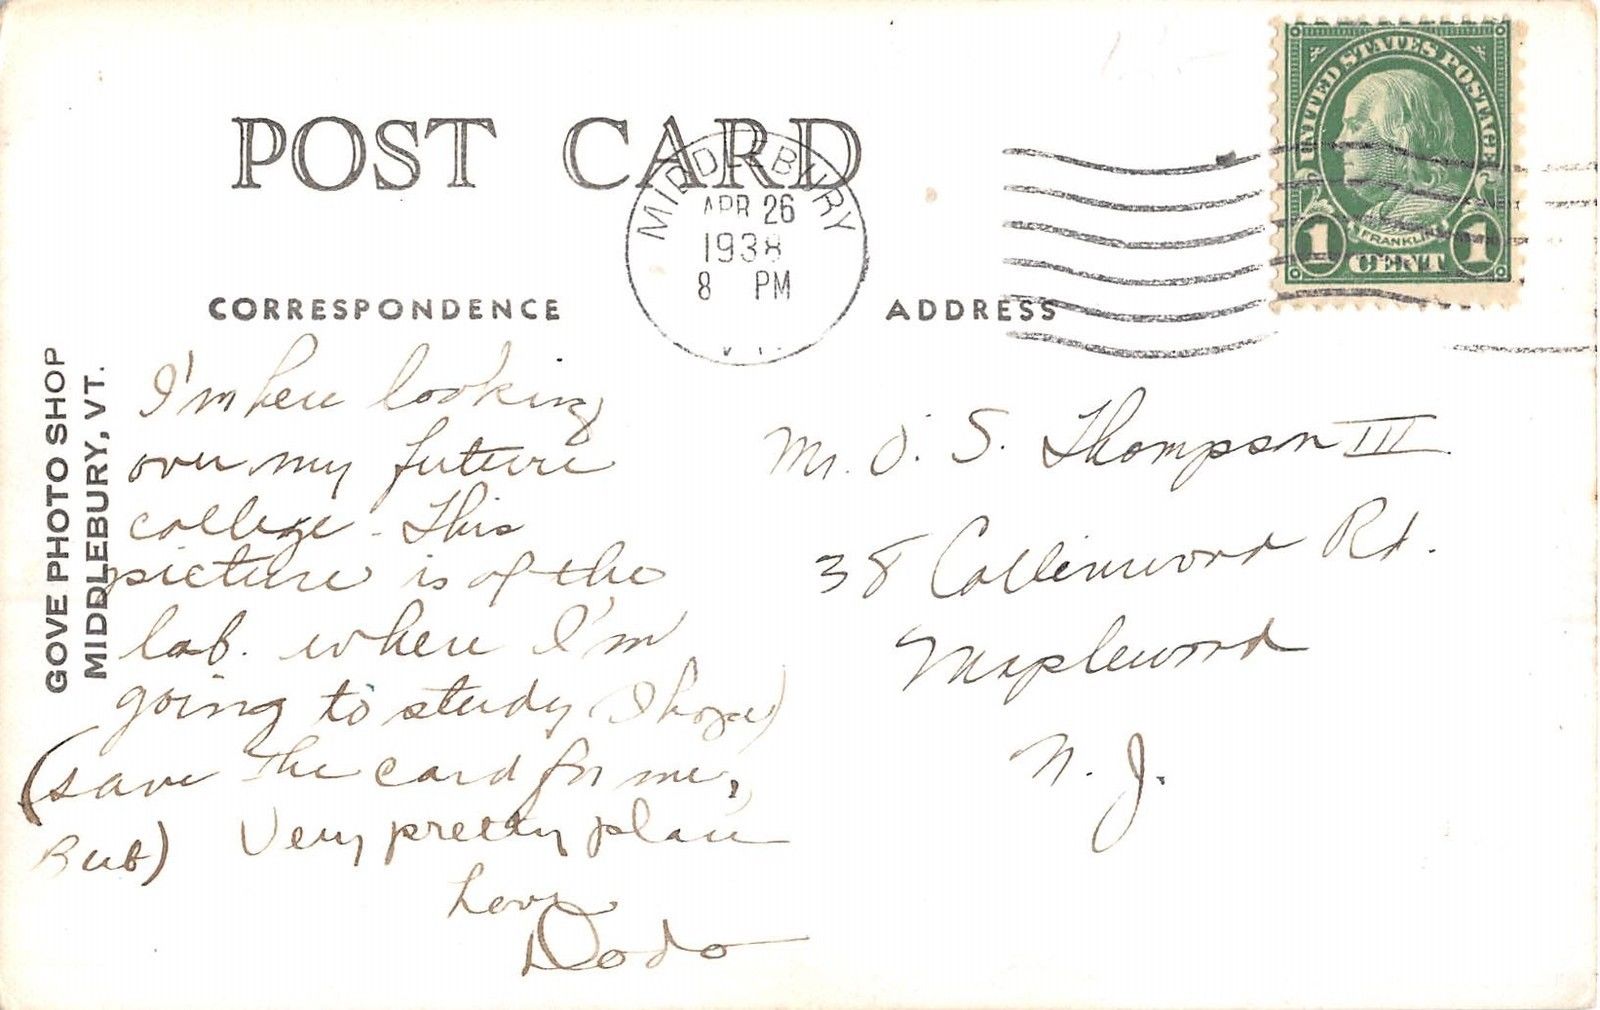 POST CARD
MIDDLEBURY
APR 26
1938
8 PM
VT.
UNITED STATES POSTAGE
FRANKLIN
1 CENT 1
CORRESPONDENCE
ADDRESS
GOVE PHOTO SHOP
MIDDLEBURY, VT.
I'm here looking
over my future
college - This
picture is of the
lab. where I'm
going to study (I hope)
(save the card for me,
Bub) Very pretty place
Love
Dodo
Mr. O. S. Thompson III
38 Collinwood Rd.
Maplewood
N. J.